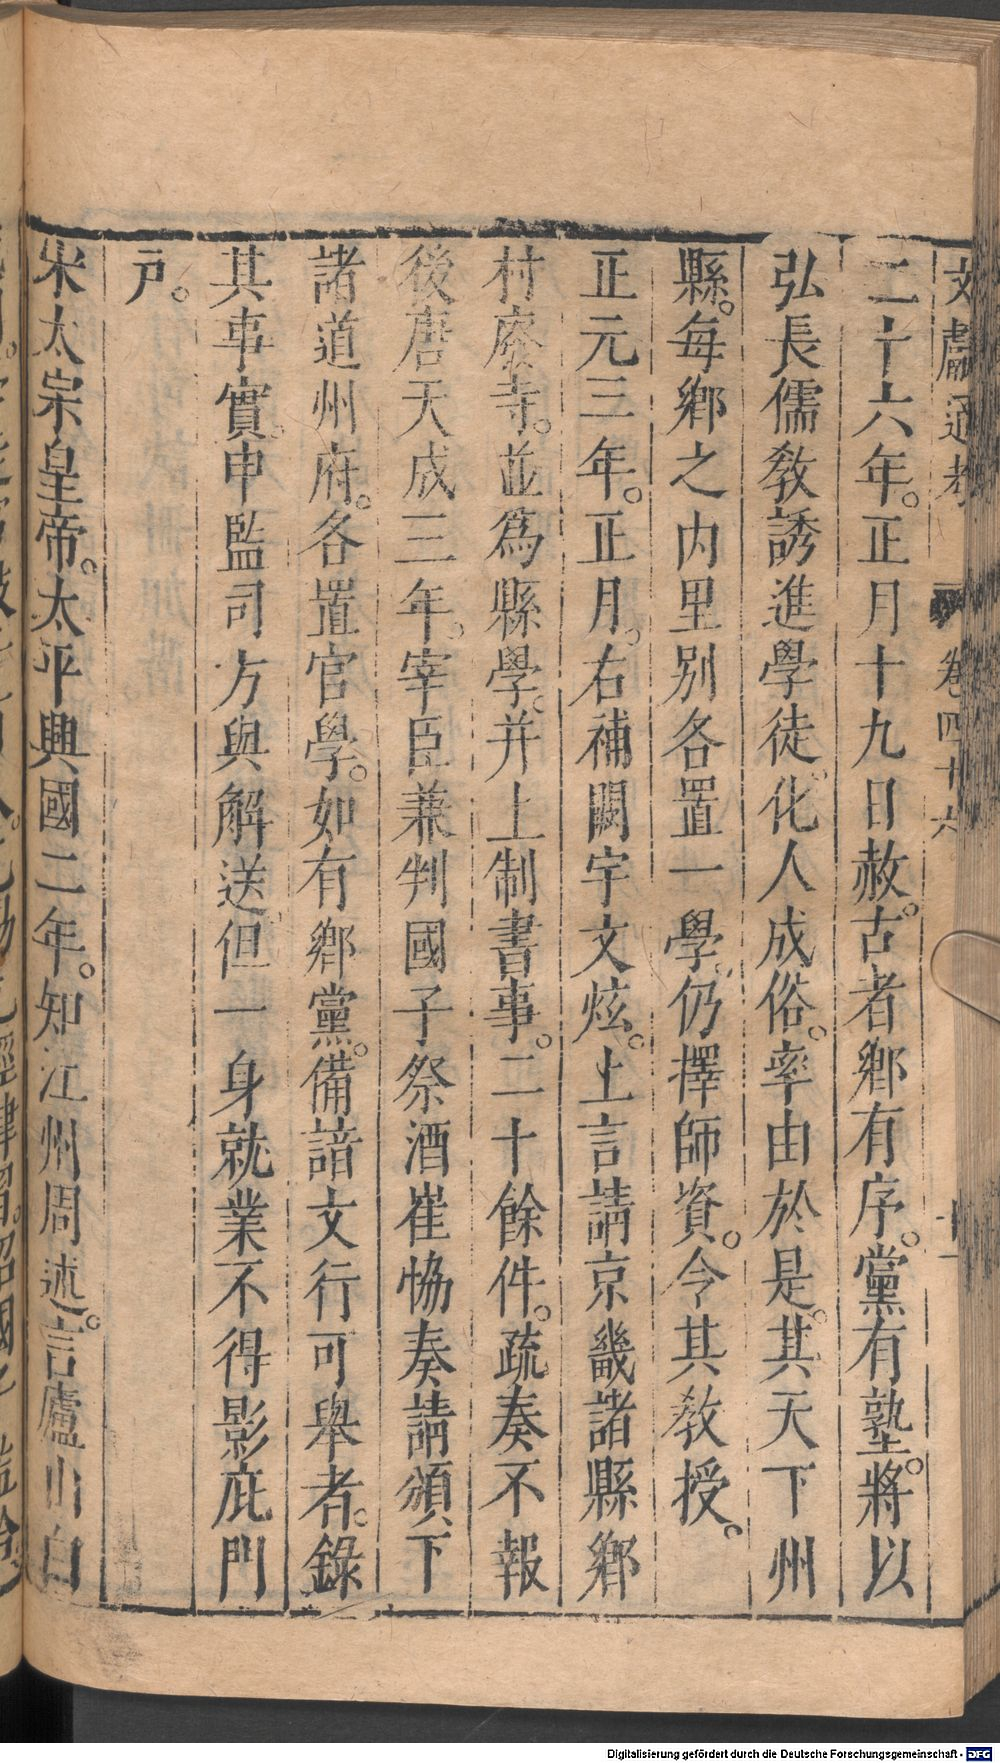 文獻通考 卷四十六 十一
二十六年。正月十九日赦。古者鄉有序。黨有塾。將以
弘長儒教誘進學徒。化人成俗。率由於是。其天下州
縣。每鄉之內里別各置一學。仍擇師資。令其教授。
正元三年。正月。右補闕宇文炫。上言請京畿諸縣鄉
村廢寺。並為縣學。并上制書事。二十餘件。疏奏不報
後唐天成三年。宰臣兼判國子祭酒崔恊奏請頒下
諸道州府。各置官學。如有鄉黨。備諳文行可舉者。錄
其事實。申監司方與解送。但一身就業不得影庇門
戶。
宋太宗皇帝。太平興國二年。知江州周述。言廬山白
Digitalisierung gefördert durch die Deutsche Forschungsgemeinschaft - DFG